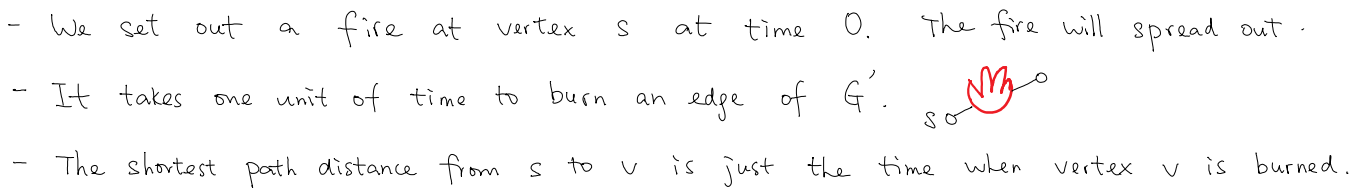 - We set out a fire at vertex s at time 0. The fire will spread out.
- It takes one unit of time to burn an edge of G'. s
- The shortest path distance from s to v is just the time when vertex v is burned.